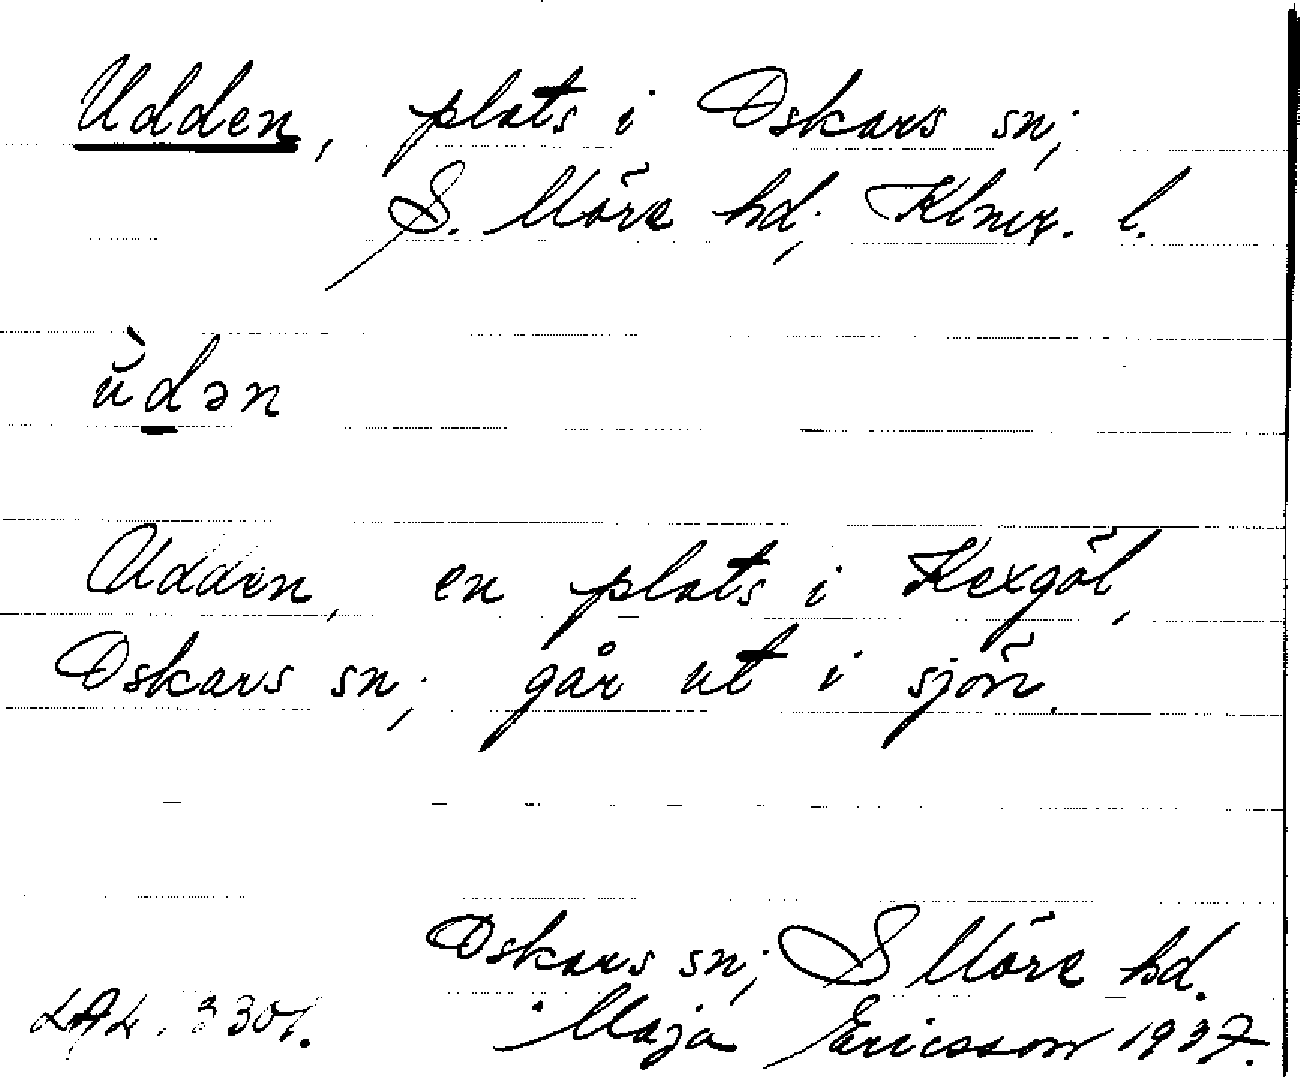 Udden, plats i Oskars sn;
S. Möre hd; Klmr. l.
ùdən
Udden, en plats i Kexgöl,
Oskars sn; går ut i sjön.
Oskars sn; S Möre hd.
LAL. 3307. Maja Ericsson 1937.